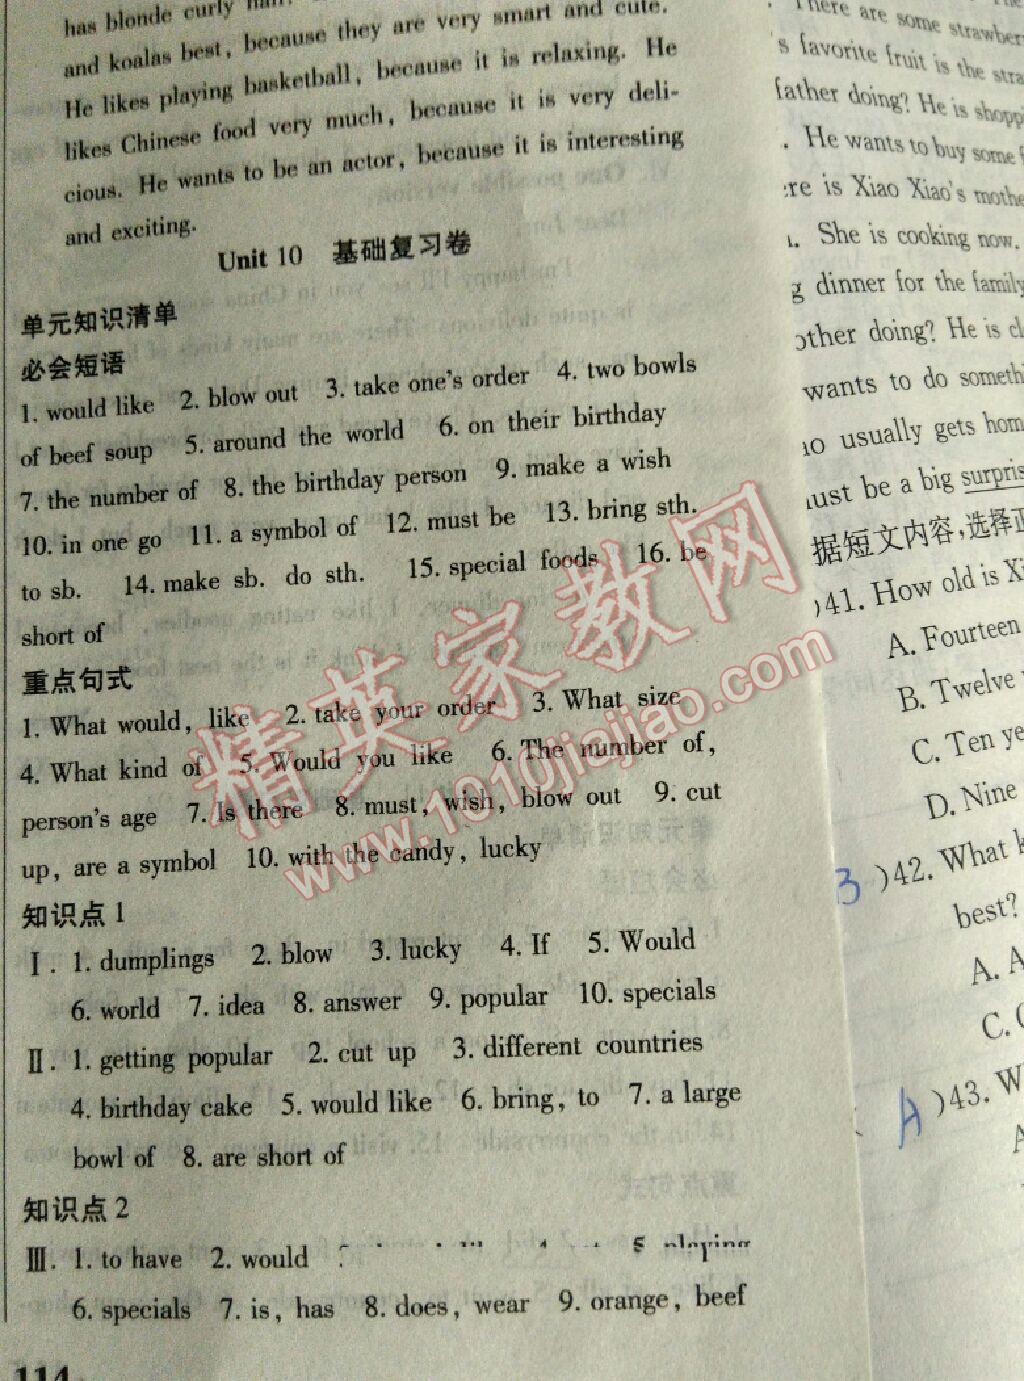 has blonde curly
and koalas best, because they are very smart and cute.
He likes playing basketball, because it is relaxing. He
likes Chinese food very much, because it is very deli-
cious. He wants to be an actor, because it is interesting
and exciting.
Unit 10 基础复习卷
单元知识清单
必会短语
1. would like 2. blow out 3. take one's order 4. two bowls
of beef soup 5. around the world 6. on their birthday
7. the number of 8. the birthday person 9. make a wish
10. in one go 11. a symbol of 12. must be 13. bring sth.
to sb. 14. make sb. do sth. 15. special foods 16. be
short of
重点句式
1. What would, like 2. take your order 3. What size
4. What kind of 5. Would you like 6. The number of,
person's age 7. Is there 8. must, wish, blow out 9. cut
up, are a symbol 10. with the candy, lucky
知识点 1
Ⅰ. 1. dumplings 2. blow 3. lucky 4. If 5. Would
6. world 7. idea 8. answer 9. popular 10. specials
Ⅱ. 1. getting popular 2. cut up 3. different countries
4. birthday cake 5. would like 6. bring, to 7. a large
bowl of 8. are short of
知识点 2
Ⅲ. 1. to have 2. would 5. playing
6. specials 7. is, has 8. does, wear 9. orange, beef
114
There are some
's favorite fruit is the
father doing? He is
. He wants to buy some
is Xiao Xiao's
She is cooking now.
dinner for the family
doing? He is
wants to do
usually gets
be a big
据短文内容,选择
)41. How old is
A. Fourteen
B. Twelve
C. Ten
D. Nine
B )42. What
best?
A.
C.
A )43.
A
精英家教网
www.1010jiajiao.com